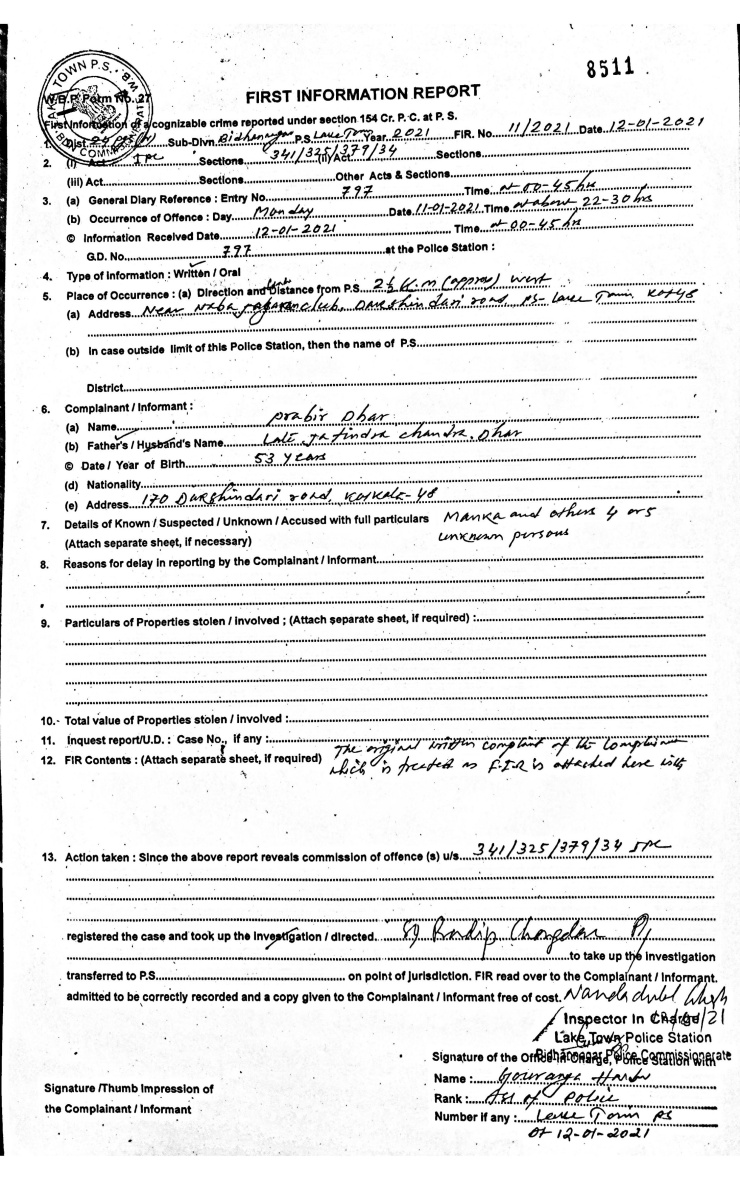 8511
LAKE TOWN P.S.
W.B.P. Form No. 27
FIRST INFORMATION REPORT
First Information of a cognizable crime reported under section 154 Cr. P. C. at P. S.
1. Dist. Sub-Divn. Bidhannagar P.S. Lake Town Year 2021 FIR. No. 11/2021 Date 12-01-2021
2. (i) Act IPC Sections 341/325/379/34 (ii) Act Sections
(iii) Act Sections Other Acts & Sections
3. (a) General Diary Reference : Entry No. 797 Time at 00-45 hrs
(b) Occurrence of Offence : Day Monday Date 11-01-2021 Time at about 22-30 hrs
© Information Received Date 12-01-2021 Time at 00-45 hrs
G.D. No. 797 at the Police Station :
4. Type of Information : Written / Oral
5. Place of Occurrence : (a) Direction and Distance from P.S. 2½ K.m (approx) west
(a) Address Near club, Dakshindari road, PS- Lake Town, Kol-48
(b) In case outside limit of this Police Station, then the name of P.S.
District
6. Complainant / Informant :
(a) Name prabir Dhar
(b) Father's / Husband's Name Late Jatindra chandra Dhar
© Date / Year of Birth 53 years
(d) Nationality
(e) Address 170 Dakshindari road, Kolkata-48
7. Details of Known / Suspected / Unknown / Accused with full particulars Manka and others 4 or 5
(Attach separate sheet, if necessary) unknown persons
8. Reasons for delay in reporting by the Complainant / Informant
9. Particulars of Properties stolen / involved ; (Attach separate sheet, if required) :
10.- Total value of Properties stolen / involved :
11. Inquest report/U.D. : Case No., if any :
12. FIR Contents : (Attach separate sheet, if required) The original written complaint of the complainant
which is treated as F.I.R is attached here with
13. Action taken : Since the above report reveals commission of offence (s) u/s 341/325/379/34 IPC
registered the case and took up the Investigation / directed.
to take up the investigation
transferred to P.S. on point of jurisdiction. FIR read over to the Complainant / Informant.
admitted to be correctly recorded and a copy given to the Complainant / Informant free of cost.
Inspector In Charge
Lake Town Police Station
Bidhannagar Police Commissionerate
Signature of the Office-in-Charge, Police Station with
Name :
Signature /Thumb Impression of
Rank : of police
the Complainant / Informant
Number if any : Lake Town PS
12-01-2021